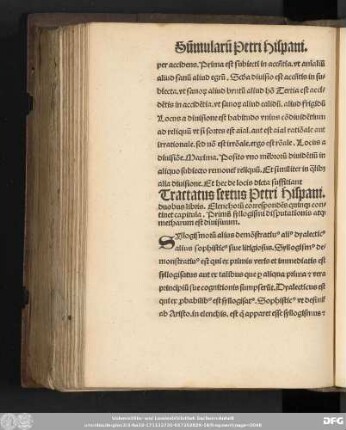 Sūmularū Petri Hispani.
per accidens. Prima est subiecti in accñtia. vt animaliū
aliud sanū aliud egrū. Scḋa diuisio est accñtis in su-
biecta. vt sanoꝝ aliud brutū aliud hō Tertia est acci-
dētis in accidētia. vt sanoꝝ aliud calidū. aliud frigidū
Locus a diuisione est habitudo vnius cōdiuidētium
ad reliquū vt si sortes est aīal. aut est aīal ratiōale aut
irrationale. sed nō est irrōale. ergo est rōale. Locus a
diuisiōe. Maxima. Posito vno mēbroꝝ diuidētiū in
aliquo subiecto remouet reliquū. Et similiter in
alia diuisione. Et hec de locis dicta sufficiant
Tractatus sextus Petri Hispani.
duobus libris. Elenchoꝝ correspondēs quinqꝫ con
tinet capitula. Primū syllogismi disputationis atqꝫ
methaꝝum est diuisiuum.
SYllogismoꝝ alius demōstratiuꝰ aliꝰ dyalecticꝰ
alius sophisticꝰ siue litigiosus. Syllogismꝰ de-
monstratiuꝰ est qui ex primis veris et immediatis est
syllogisatus aut ex talibus que ꝑ aliqua prima et vera
principiū sue cognitionis sumpserūt. Dyalecticus est
qui ex ꝓbabilibꝰ est syllogisatꝰ. Sophisticꝰ vt definit
ab Aristo. in elenchis. est q̄ apparet esse syllogismus et